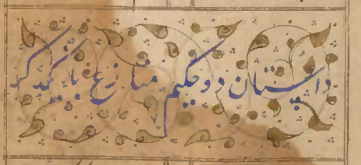 داستان دو حکیم متنازع با یکدیگر